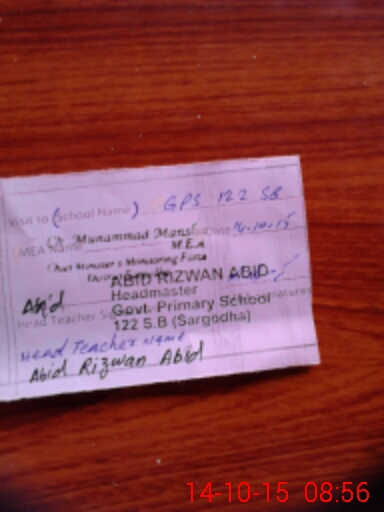 Visit to (School Name) GPS 122 SB
MEA Name
Muhammad Date 14-10-15
M.E.A
Chief Minister's Monitoring Force
ABID RIZWAN ABID
Headmaster
Abid
Govt. Primary School
Head Teacher
122 S.B (Sargodha)
Head Teacher Name
Abid Rizwan Abid
14-10-15 08:56